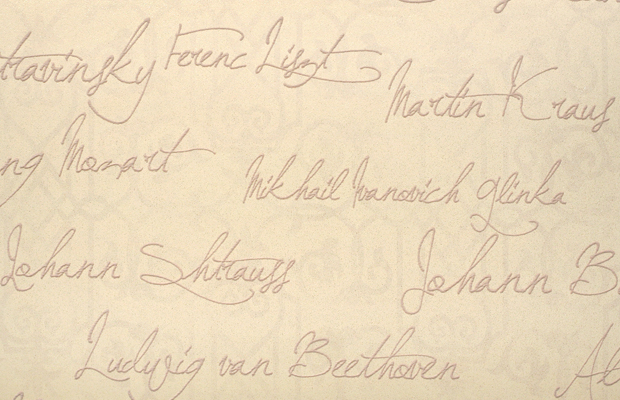 travinsky Ferenc Liszt
Martin Kraus
ng Mozart
Mikhail Ivanovich Glinka
Johann Shtrauss
Johann B.
Ludwig van Beethoven
Al